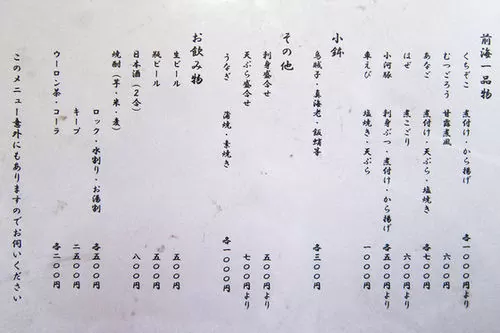 前海一品物
くちぞこ 煮付け・から揚げ 各一〇〇〇円より
むつごろう 甘露煮風 六〇〇円
あなご 煮付け・天ぷら・塩焼き 各七〇〇円
はぜ 煮こごり 六〇〇円より
小河豚 刺身ぶつ・煮付け・から揚げ 各五〇〇円より
車えび 塩焼き・天ぷら 一〇〇〇円
小鉢
烏賊子・真海老・飯蛸等 各三〇〇円
その他
刺身盛合せ 五〇〇円より
天ぷら盛合せ 七〇〇円より
うなぎ 蒲焼・素焼き 各一〇〇〇円
お飲み物
生ビール 五〇〇円
瓶ビール 五〇〇円
日本酒(2合) 八〇〇円
焼酎(芋・米・麦)
ロック・水割り・お湯割 各五〇〇円
キープ 二五〇〇円
ウーロン茶・コーラ 各二〇〇円
このメニュー意外にもありますのでお伺いください